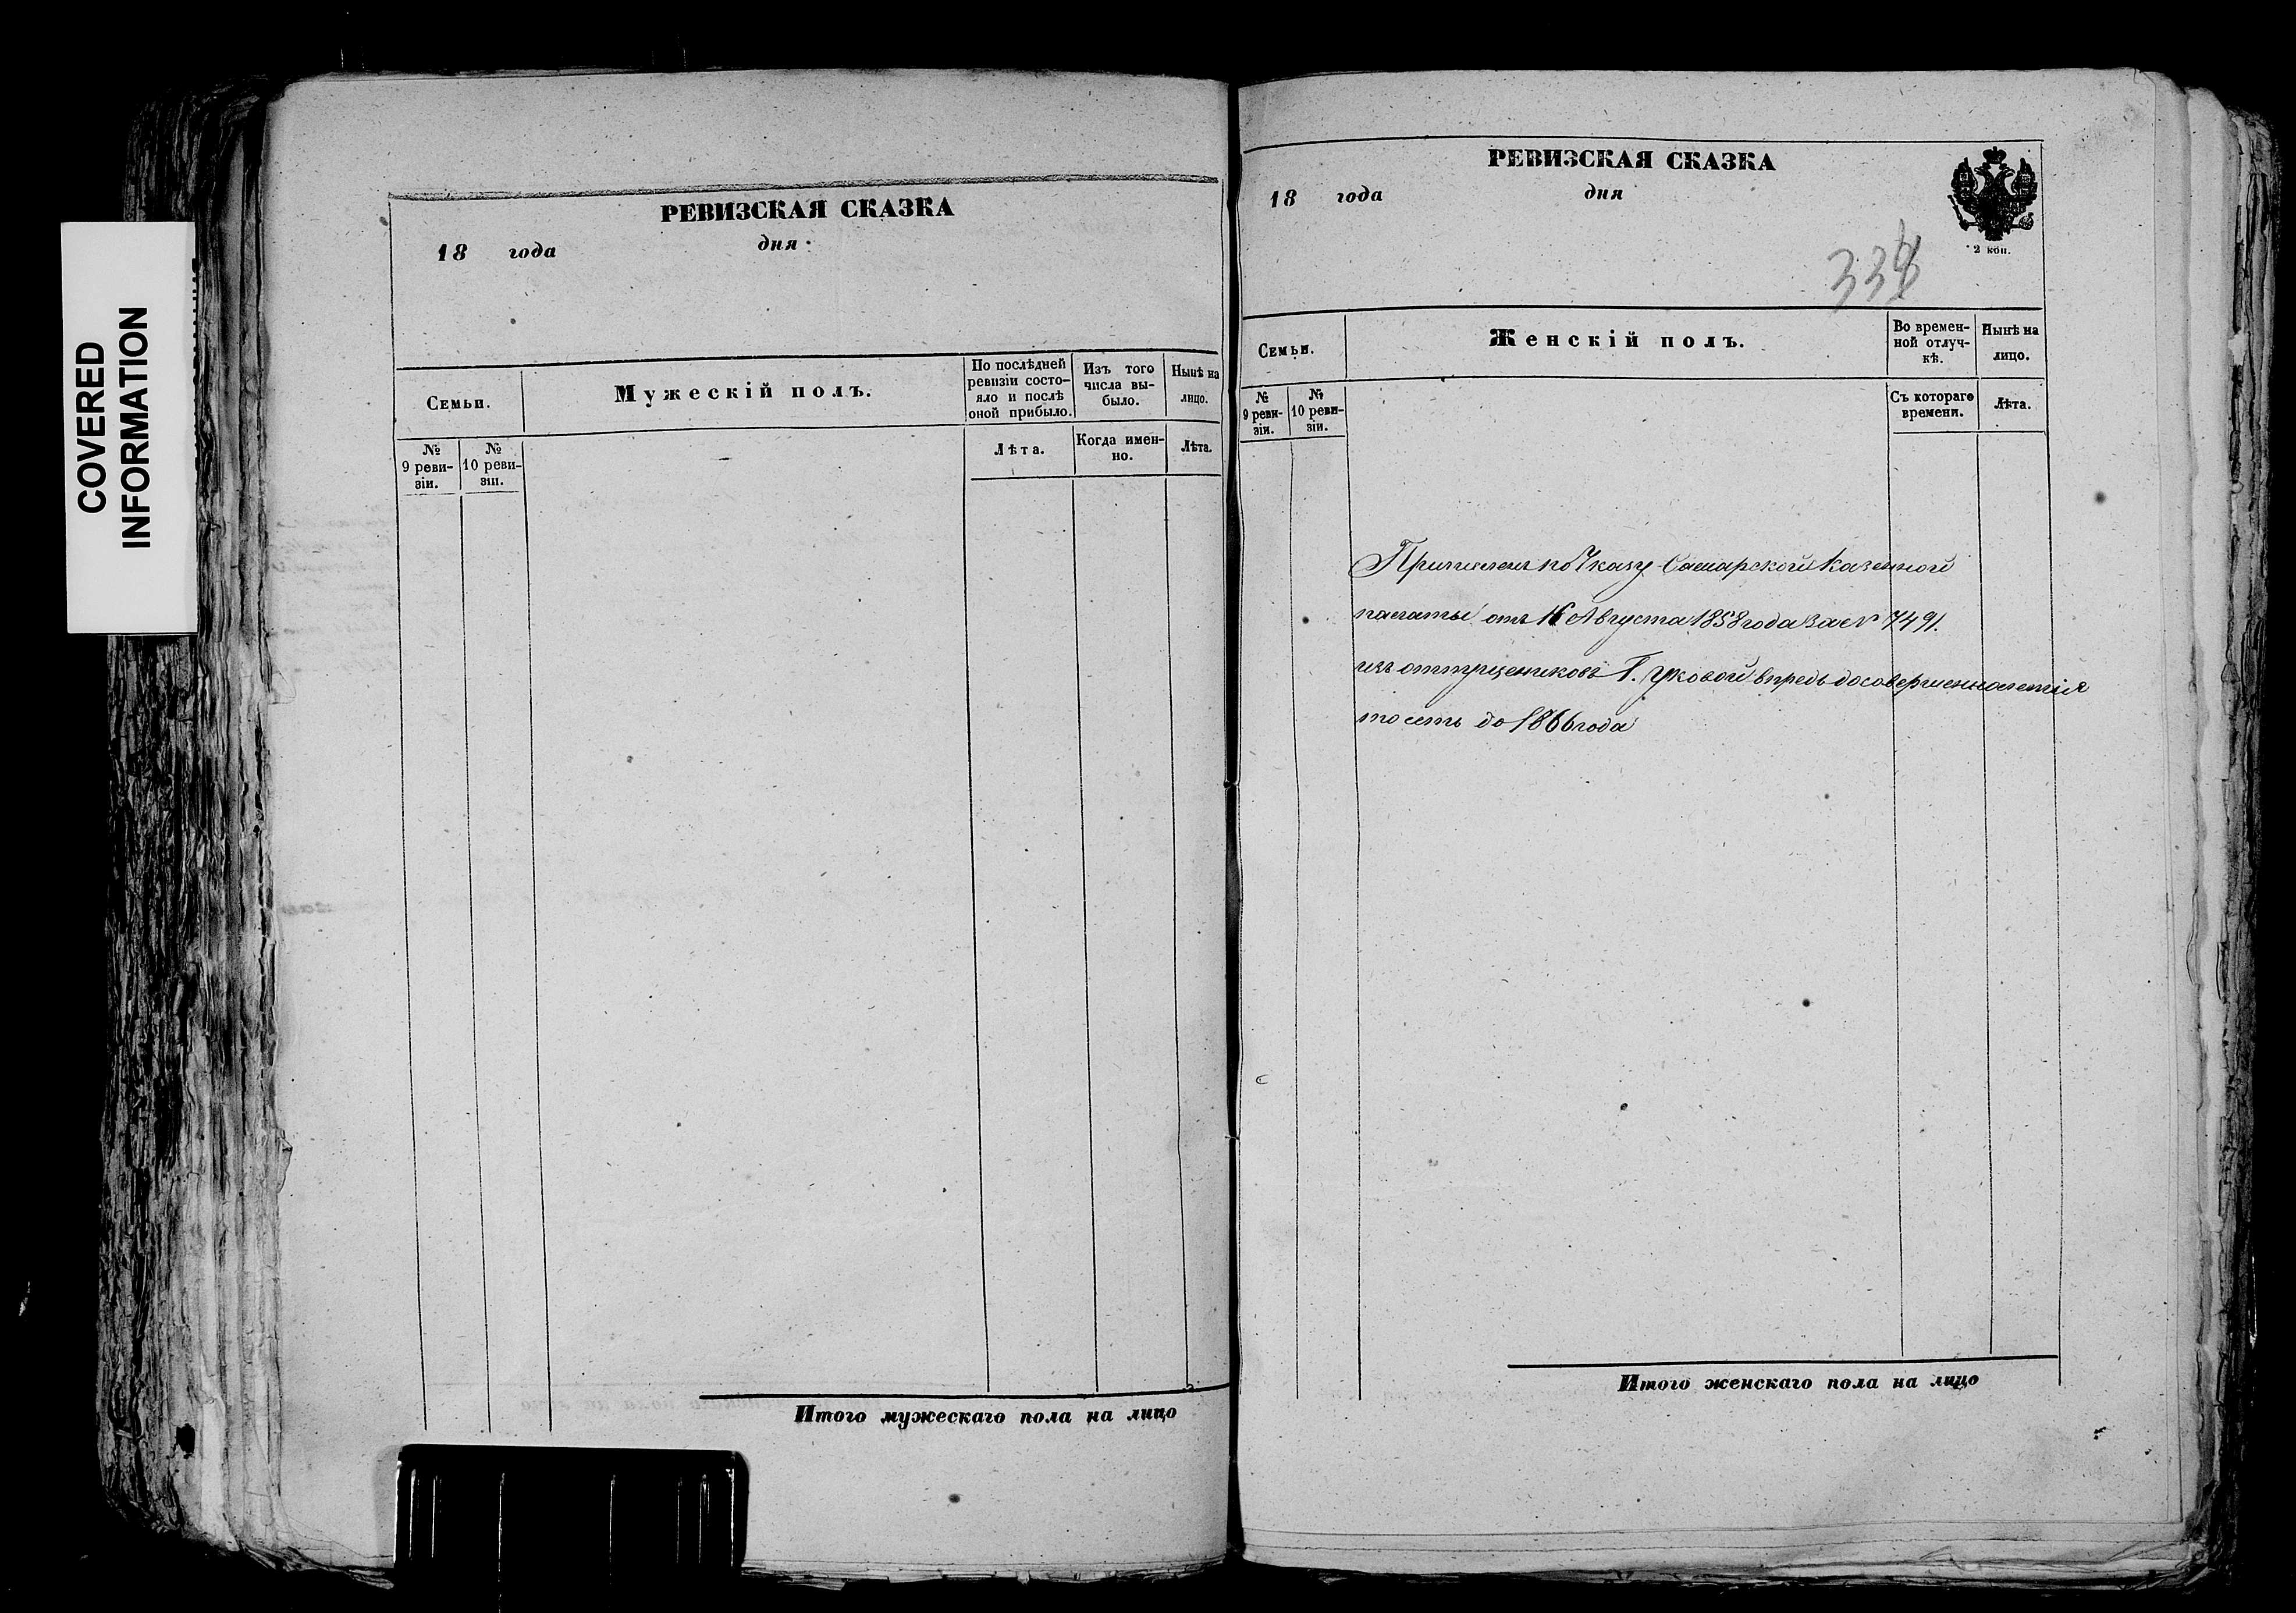 COVERED
INFORMATION
РЕВИЗСКАЯ СКАЗКА
18 года дня
Семьи.
Мужескій полъ.
По послѣдней
ревизіи состо-
яло и послѣ
оной прибыло.
Изъ того
числа вы-
было.
Нынѣ на
лицо.
№
9 реви-
зіи.
№
10 реви-
зіи.
Лѣта.
Когда имен-
но.
Лѣта.
Итого мужескаго пола на лицо
РЕВИЗСКАЯ СКАЗКА
18 года дня
2 коп.
338
Семьи.
Женскій полъ.
Во времен-
ной отлуч-
кѣ.
Нынѣ на
лицо.
№
9 реви-
зіи.
№
10 реви-
зіи.
Съ котораго
времени.
Лѣта.
Приписанъ по Указу Самарской Казенной
палаты отъ 16 Августа 1858 года за № 7491.
изъ отпущениковъ Г. Уковой впредь до совершеннолетія
то есть до 1866 года
Итого женскаго пола на лицо